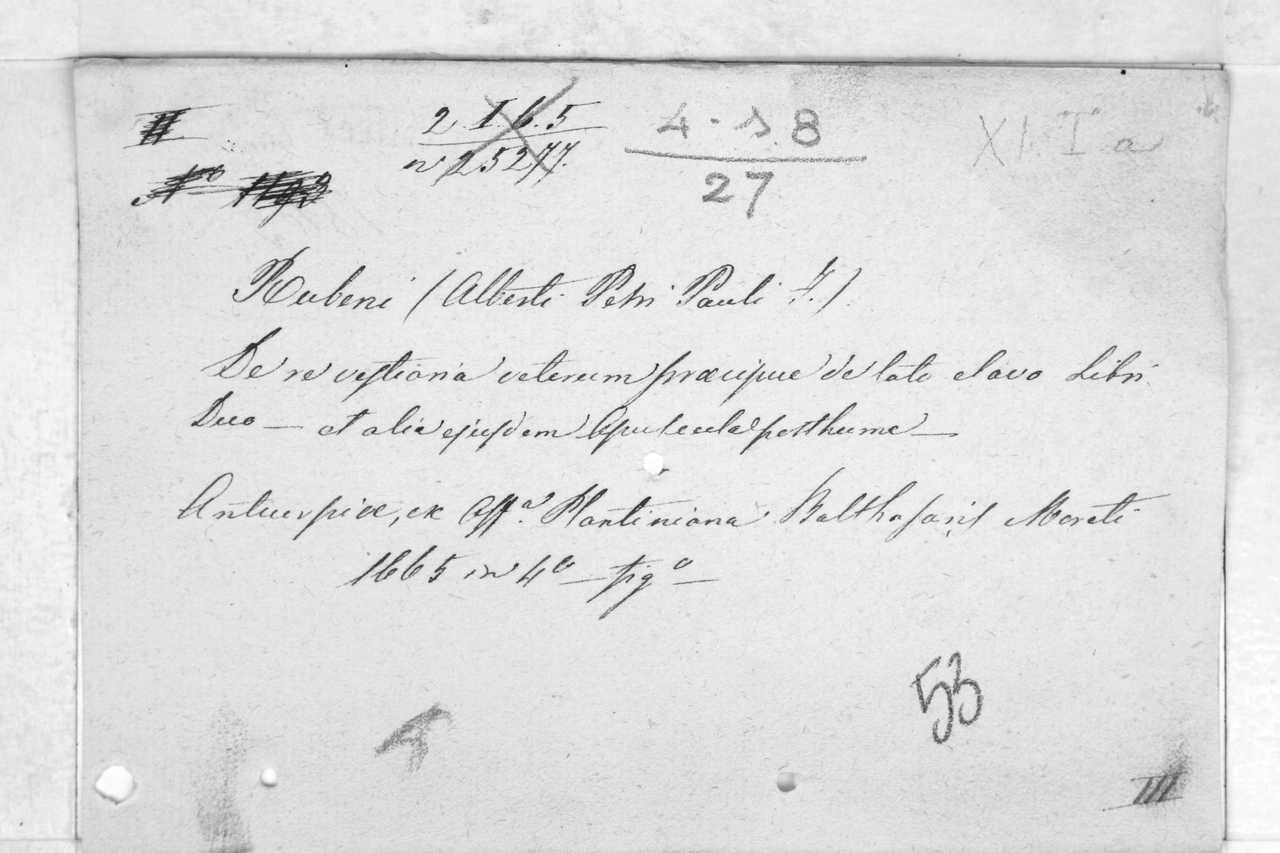 II
2. I. 6. 5
n 25277.
4 - s. 8
27
XI. I a
No
Rubeni (Alberti Petri Pauli F.)
De re vestiaria veterum præcipue de lato clavo Libri
Duo — et alia ejusdem Opuscula posthuma —
Antuerpiæ, ex Offa. Plantiniana Balthasaris Moreti
1665 in 4o — figo —
53
III